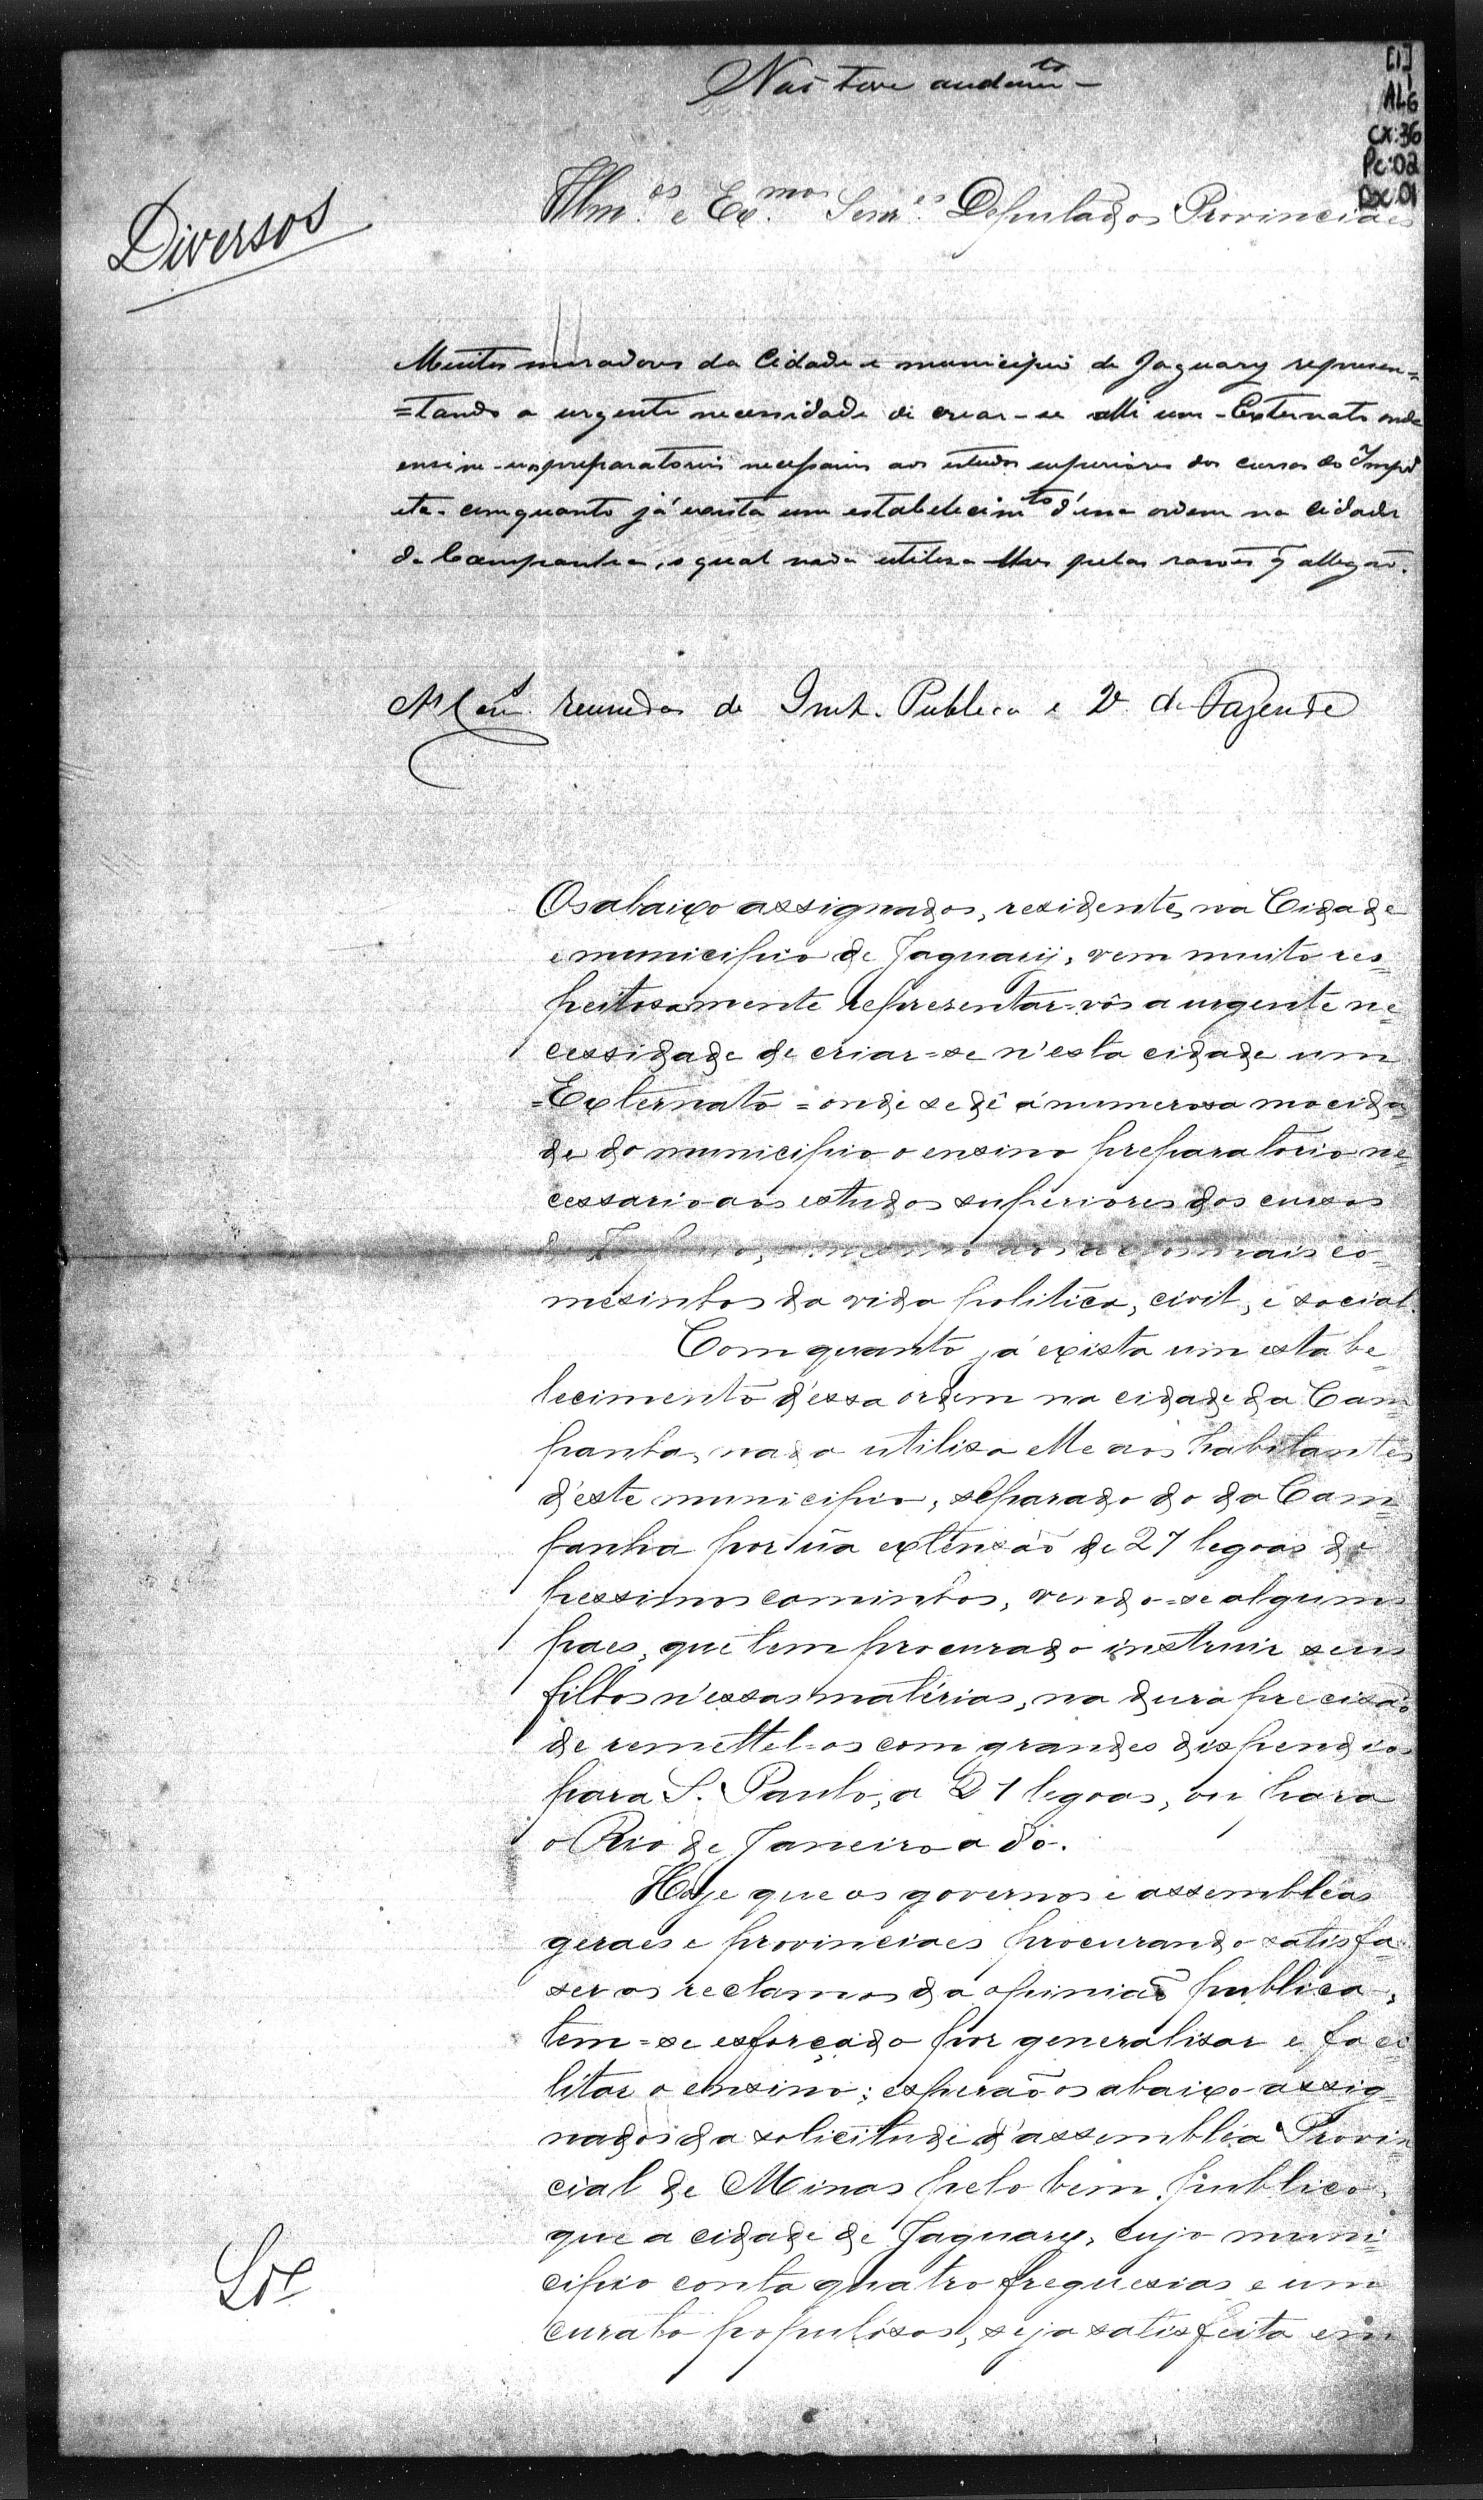 Não teve andamto
[1]
AL6
Cx:36
Pc:02
Dx:01
Diversos
Illm.os e Ex.mos Senr.es Deputados Provinciaes
Muitos moradores da Cidade e municipio de Jaguary represen-
=tando a urgente necessidade de crear-se alli um - Externato onde
ensine-se preparatorios necessarios aos estudos superiores dos cursos do Imp.º
etc. comquanto já exista um estabelecim.to d'essa ordem na cidade
da Campanha, o qual nada utilisa-lhes pelas rasões q̃ allegão.
Ás Com.s reunidas de Inst. Publica e 2ª de Fazenda
Os abaixo assignados, residentes na Cidade
e municipio de Jaguary, vem muito res-
peitosamente representar-vos a urgente ne-
cessidade de criar-se n'esta cidade um
=Externato= onde se dê á numerosa mocida-
de do municipio o ensino preparatorio ne-
cessario aos estudos superiores dos cursos
do Imperio, mais co-
mesinhos da vida politica, civil, e social.
Comquanto já exista um estabe-
lecimento d'essa ordem na cidade da Cam-
panha, nada utilisa elle aos habitantes
d'este municipio, separado do da Cam-
panha por ũa extensão de 27 legoas de
pessimos caminhos, vendo-se alguns
paes, que tem procurado instruir seus
filhos n'essas matérias, na dura precisão
de remettel-os com grandes dispendios
para S. Paulo, a 21 legoas, ou para
o Rio de Janeiro a 80.
Hoje que os governos e assembleas
geraes e provinciaes procurando satisfa-
ser os reclamos da opinião publica,
tem-se esforçado por generalisar e faci-
litar o ensino; esperão os abaixo assig-
nados da solicitude d'assemblea Provin-
cial de Minas pelo bem publico,
que a cidade de Jaguary, cujo muni-
cipio conta quatro freguesias e um
curato populosos, seja satisfeita em